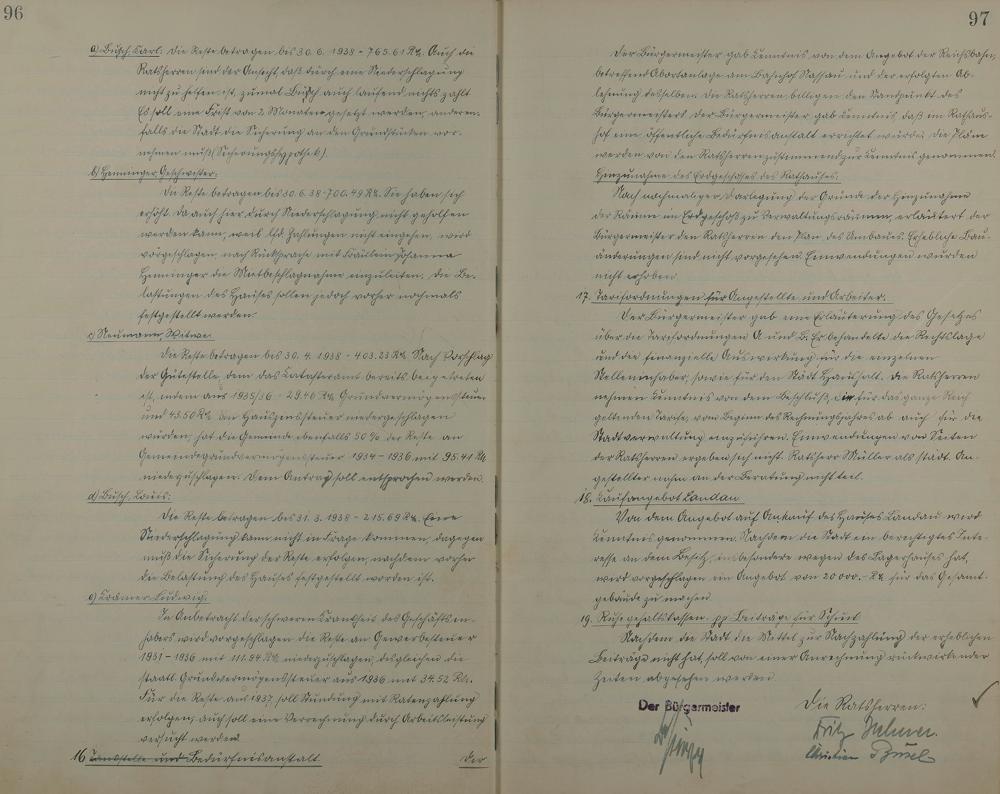 96
a) Busch, Karl: Die Reste betragen bis 30.6.1938 - 765.61 RM. Auch die
Ratsherren sind der Ansicht, daß durch eine Niederschlagung
nicht zu helfen ist, zumal Busch auch laufend nichts zahlt
Es soll eine Frist von 2 Monaten gesetzt werden, anderen-
falls die Stadt die Sicherung an den Grundstücken vor-
nehmen muß (Sicherungshypothek).
b) Henninger, Geschwister:
Die Reste betragen bis 30.6.38 - 700.49 RM. Sie haben sich
erhöht. Da auch hier durch Niederschlagung nicht geholfen
werden kann, weil lfd. Zahlungen nicht eingehen, wird
vorgeschlagen, nach Rücksprache mit Fräulein Johanna
Henninger die Mietbeschlagnahme einzuleiten, die Be-
lastungen des Hauses sollen jedoch vorher nochmals
festgestellt werden.
c) Neumann, Witwe:
Die Reste betragen bis 30.4.1938 - 403.23 RM. Nach Vorschlag
der Gütestelle, dem das Katasteramt bereits beigetreten
ist, indem aus 1935/36 - 29.40 RM Grundvermögenssteuer
und 43.50 RM an Hauszinssteuer niedergeschlagen
wurden, hat die Gemeinde ebenfalls 50 % der Reste an
Gemeindegrundvermögensteuer 1934 - 1936 mit 95.41 RM
niederzuschlagen. Dem Antrag soll entsprochen werden.
d) Busch, Louis:
Die Reste betragen bis 31.3.1938 - 215.69 RM. Eine
Niederschlagung kann nicht in Frage kommen, dagegen
muß die Sicherung der Reste erfolgen, nachdem vorher
die Belastung des Hauses festgestellt worden ist.
e) Krämer Ludwig.
In Anbetracht der schweren Krankheit des Geschäftsin-
habers wird vorgeschlagen die Reste an Gewerbesteuer
1931 - 1936 mit 111.94 RM niederzuschlagen, desgleichen die
staatl. Grundvermögenssteuer aus 1936 mit 34.52 RM.
Für die Reste aus 1937 soll Stundung mit Ratenzahlung
erfolgen, auch soll eine Verrechnung durch Arbeitsleistung
versucht werden
16 Tankstelle und Bedürfnisanstalt
Der
97
Der Bürgermeister gab Kenntnis von dem Angebot der Reichsbahn,
betreffend Abortanlage am Bahnhof Nassau und der erfolgten Ab-
lehnung desselben. Die Ratsherren billigen den Standpunkt des
Bürgermeisters. Der Bürgermeister gab Kenntnis, daß im Rathaus-
hof eine öffentliche Bedürfnisanstalt errichtet würde. Die Pläne
werden von den Ratsherren zustimmend zur Kenntnis genommen.
Hinzunahme des Erdgeschosses des Rathauses.
Nach nochmaliger Darlegung der Gründe der Hinzunahme
der Räume im Erdgeschoß zu Verwaltungsräumen, erläutert der
Bürgermeister den Ratsherren den Plan des Umbaues. Erhebliche Bau-
änderungen sind nicht vorgesehen. Einwendungen wurden
nicht erhoben.
17. Tarifordnungen für Angestellte und Arbeiter.
Der Bürgermeister gab eine Erläuterung des Gesetzes
über die Tarifordnungen A und B. Er behandelte die Rechtslage
und die finanzielle Auswirkung für die einzelnen
Stelleninhaber, sowie für den Städt. Haushalt. Die Ratsherren
nehmen Kenntnis von dem Beschluß, die für das ganze Reich
geltenden Tarife, vom Beginn des Rechnungsjahres ab auch für die
Stadtverwaltung einzuführen. Einwendungen von Seiten
der Ratsherren ergeben sich nicht. Ratsherr Müller als städt. An-
gestellter nahm an der Beratung nicht teil.
18. Kaufangebot Landau
Von dem Angebot auf Ankauf des Hauses Landau wird
Kenntnis genommen. Nachdem die Stadt ein berechtigtes Inte-
resse an dem Besitz, insbesondere wegen des Lagerhauses hat,
wird vorgeschlagen ein Angebot von 20000.- RM für das Gesamt-
gebäude zu machen
19. Ruhegehaltskassen. pp Beiträge für
Nachdem die Stadt die Mittel zur Nachzahlung der erheblichen
Beiträge nicht hat, soll von einer Anrechnung rückwirkender
Zeiten abgesehen werden
Der Bürgermeister
Die Ratsherren:
Fritz
Christian